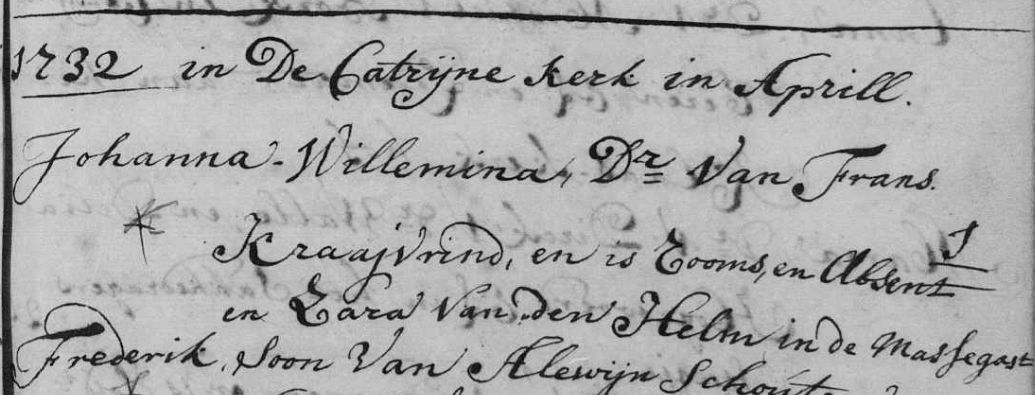 1732 in De Catrijne kerk in Aprill.
Johanna-Willemina, Dr Van Frans.
Kraajvrind, en is Rooms, en Absent 1
en Zara Van den Helm in de Massegast
Frederik, Soon Van Alewijn Schout